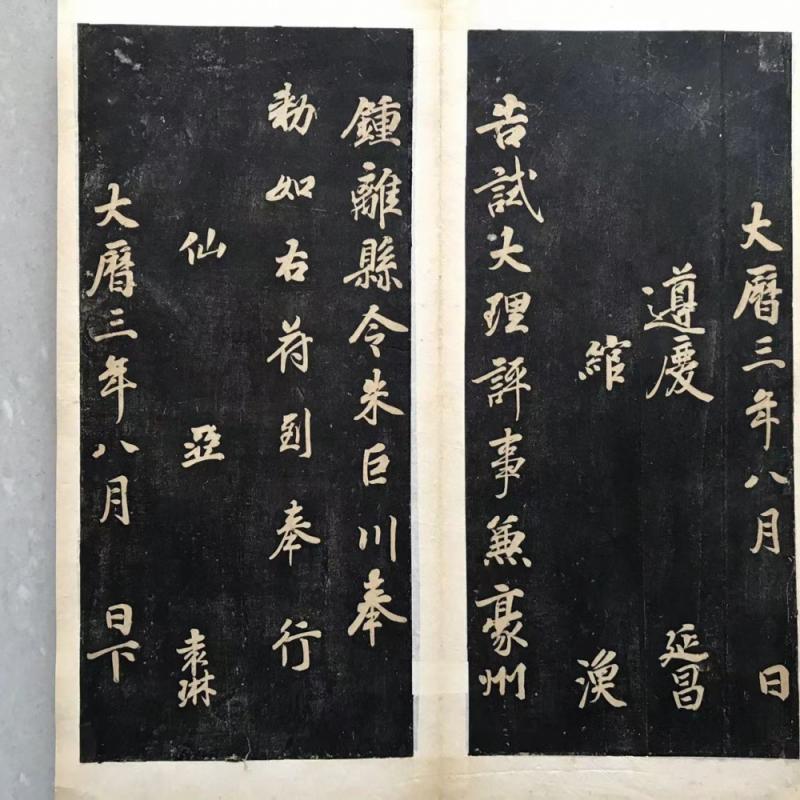 大曆三年八月 日
遵慶 延昌
綰 渙
告試大理評事兼豪州
鍾離縣令朱巨川奉
勅如右符到奉行
仙 亞 袁琳
大曆三年八月 日下